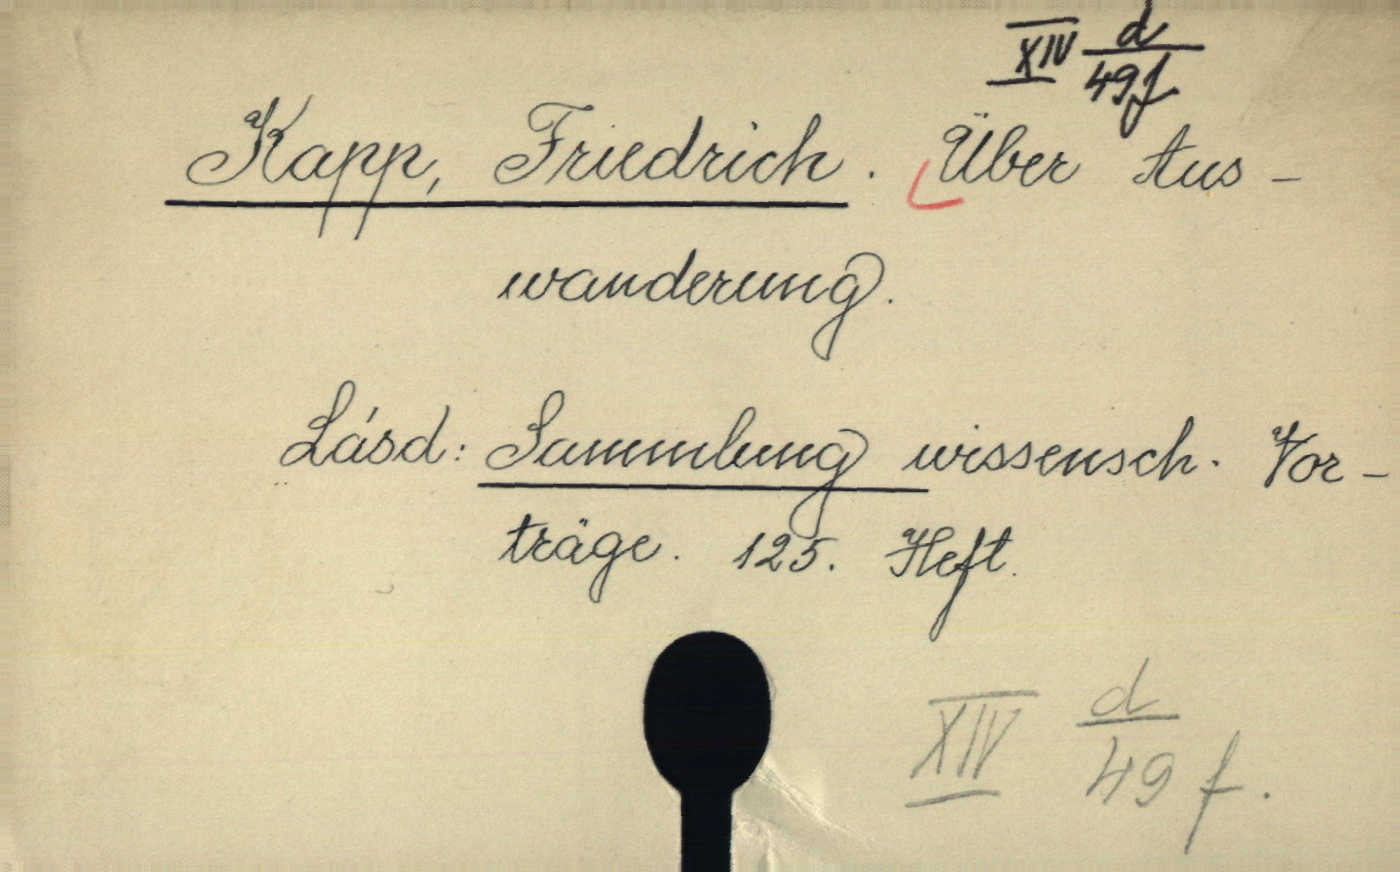 XIV d/49f
Kapp, Friedrich. Über Aus-
wanderung.
Lásd: Sammlung wissensch. Vor-
träge. 125. Heft.
XIV d/49 f.